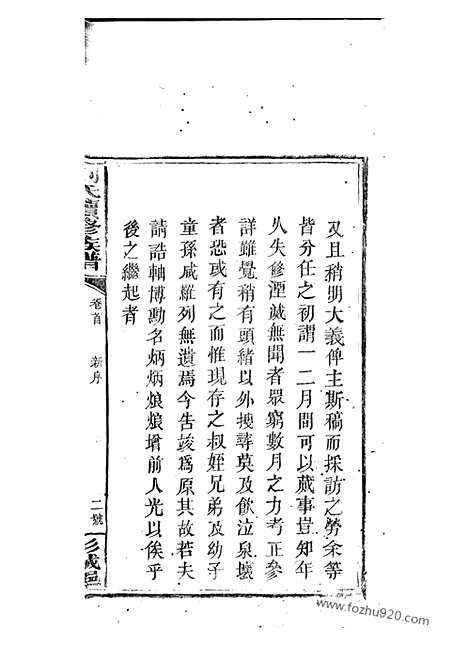 及且稍明大義俾主斯稿而採訪之勞余等
皆分任之初謂一二月間可以蕆事豈知年
久失修湮滅無聞者眾窮數月之力考正參
詳雖覺稍有頭緒以外搜尋莫及飲泣泉壤
者恐或有之而惟現存之叔姪兄弟及幼子
童孫咸羅列無遺焉今告竣爲原其故若夫
請誥軸博勳名炳炳烺烺增前人光以俟乎
後之繼起者
氏續修族譜
卷首
新序
二號
彭城邑
www.fozhu920.com